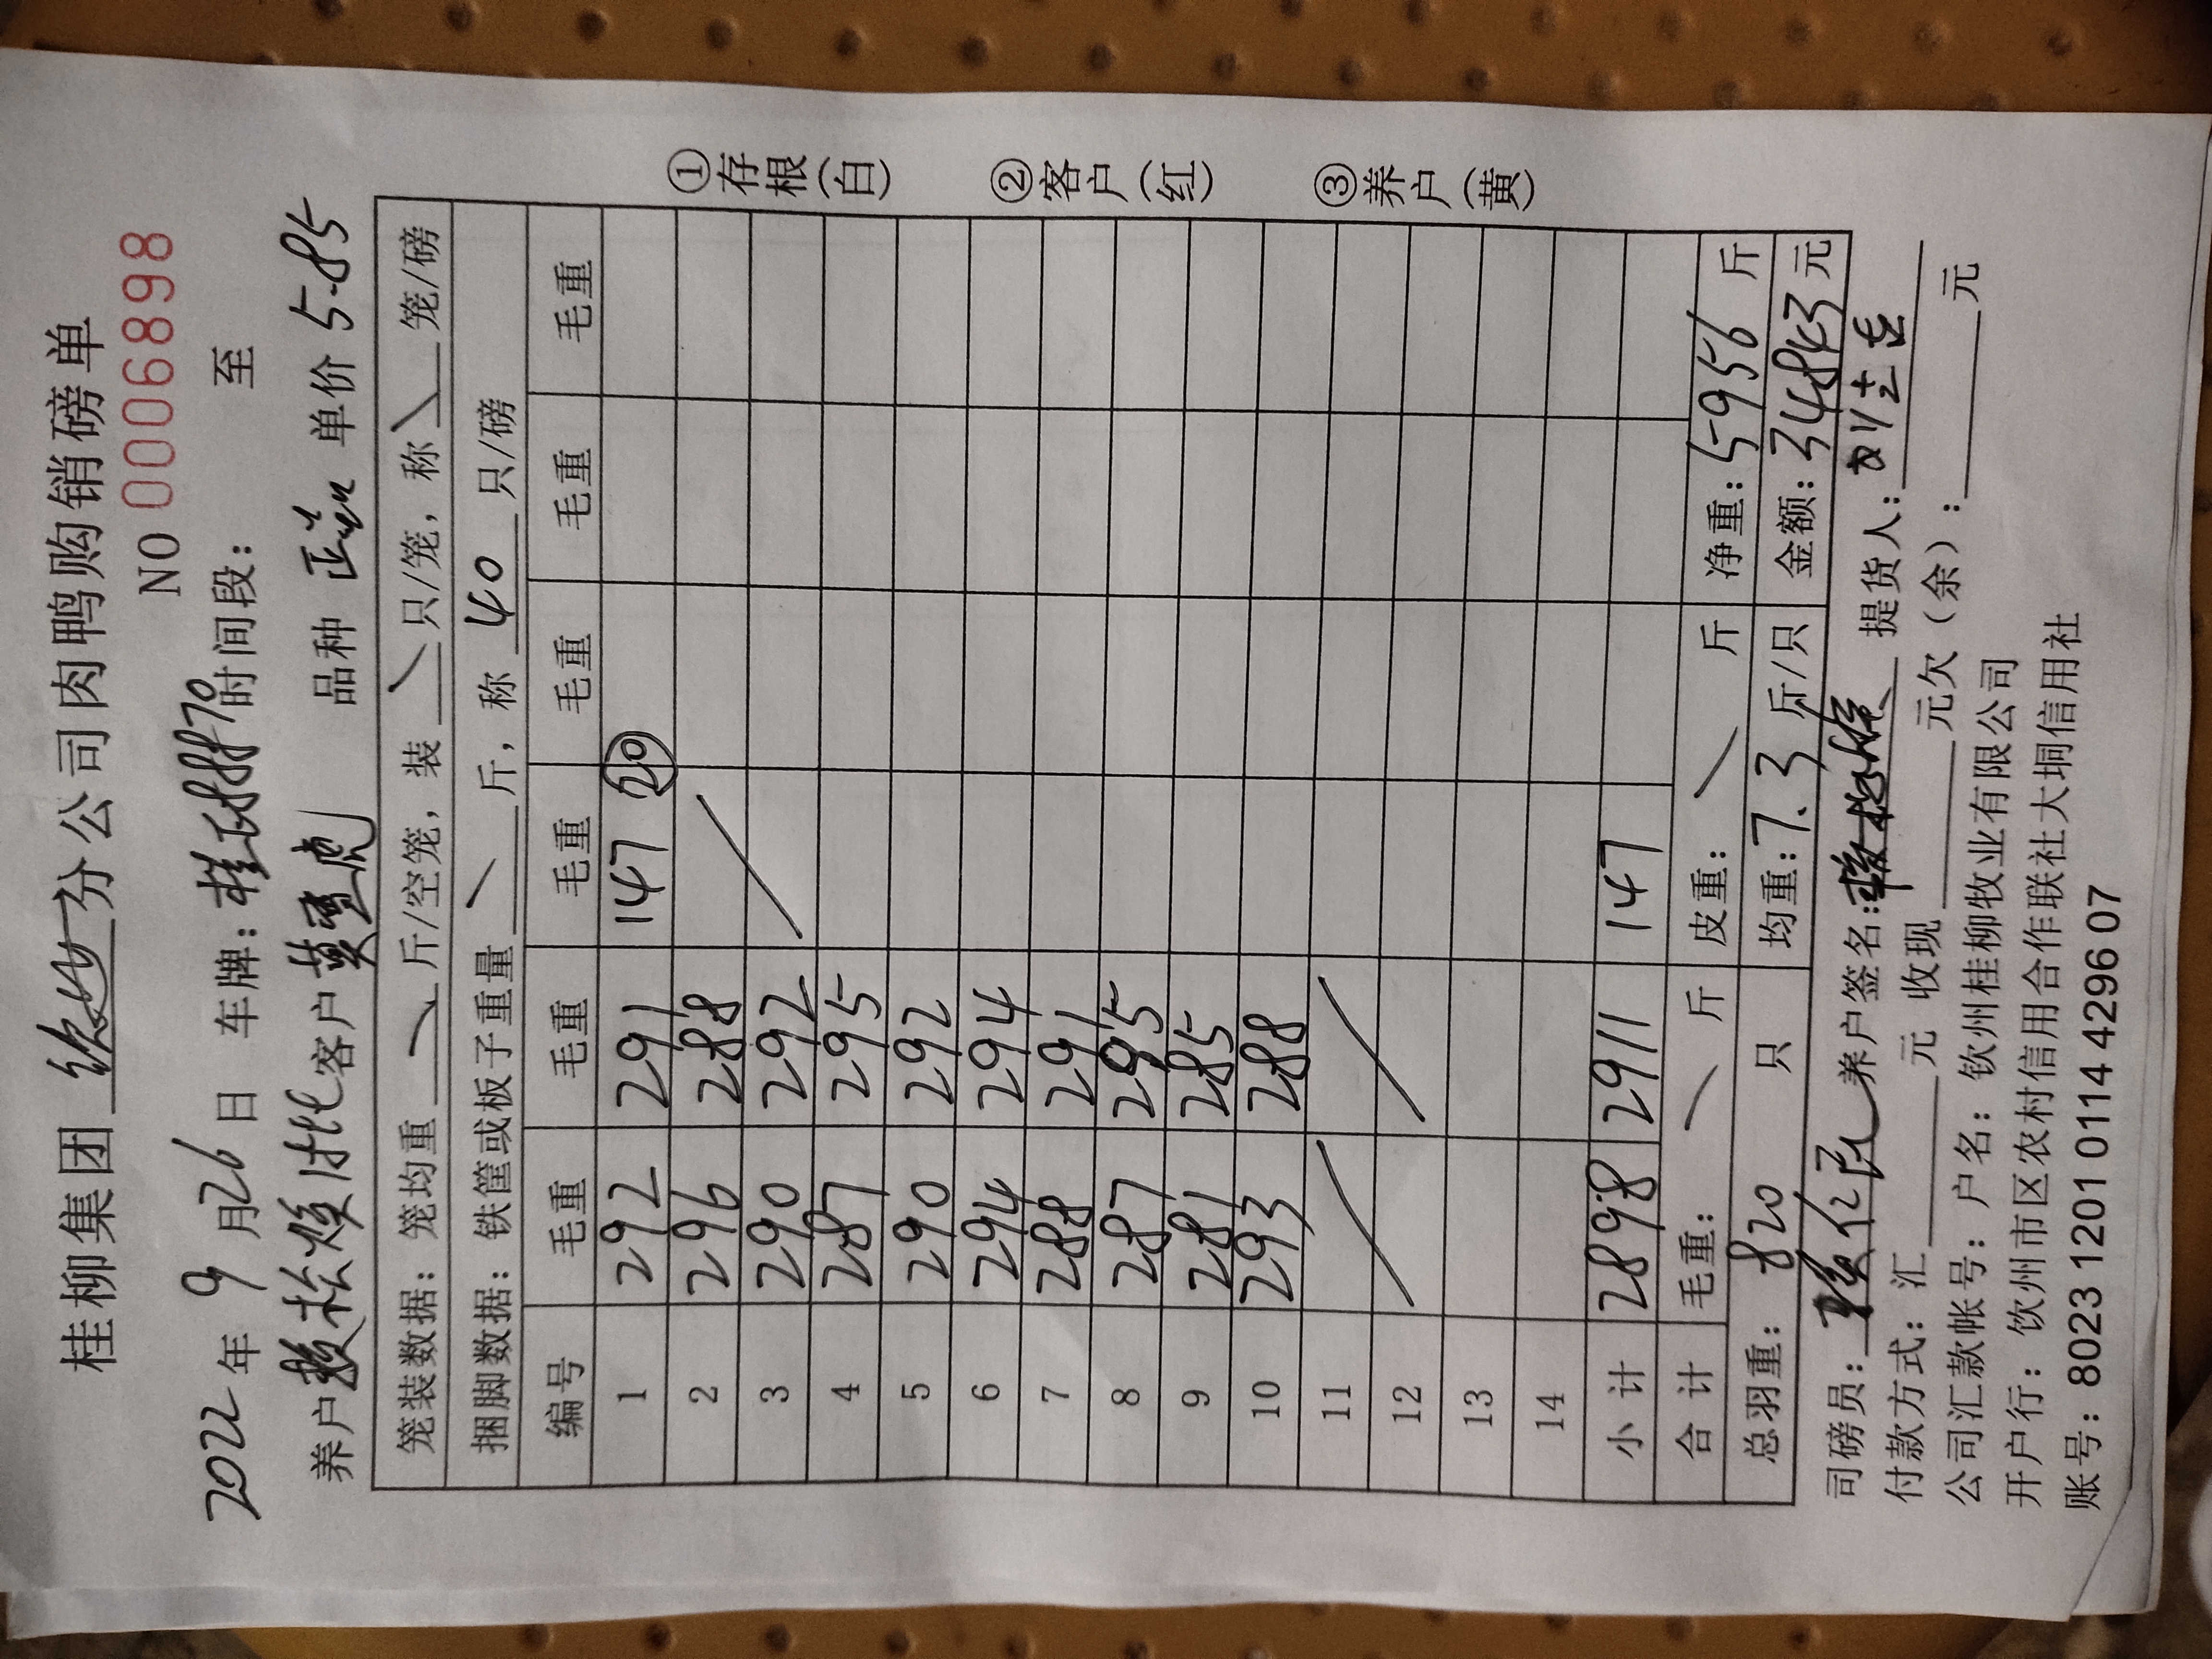 桂柳集团 钦州 分公司肉鸭购销磅单
NO 0006898
2022年 9月26日 车牌: 时间段: 至
养户 客户 品种 单价 5.85
笼装数据: 笼均重 斤/空笼, 装 只/笼, 称 笼/磅
捆脚数据: 铁筐或板子重量 斤, 称 40 只/磅
编号 毛重 毛重 毛重 毛重 毛重 毛重
1 292 291 147 20
2 296 288
3 290 292
4 287 295
5 290 292
6 294 294
7 288 291
8 287 295
9 281 285
10 293 288
11
12
13
14
小计 2898 2911 147
合计 毛重: 斤 皮重: 斤 净重: 5956 斤
总羽重: 820 只 均重: 7.3 斤/只 金额: 34843 元
司磅员: 养户签名: 提货人:
付款方式: 汇 元 收现 元欠(余): 元
公司汇款帐号: 户名: 钦州桂柳牧业有限公司
开户行: 钦州市区农村信用合作联社大垌信用社
账号: 8023 1201 0114 4296 07
①存根(白)
②客户(红)
③养户(黄)